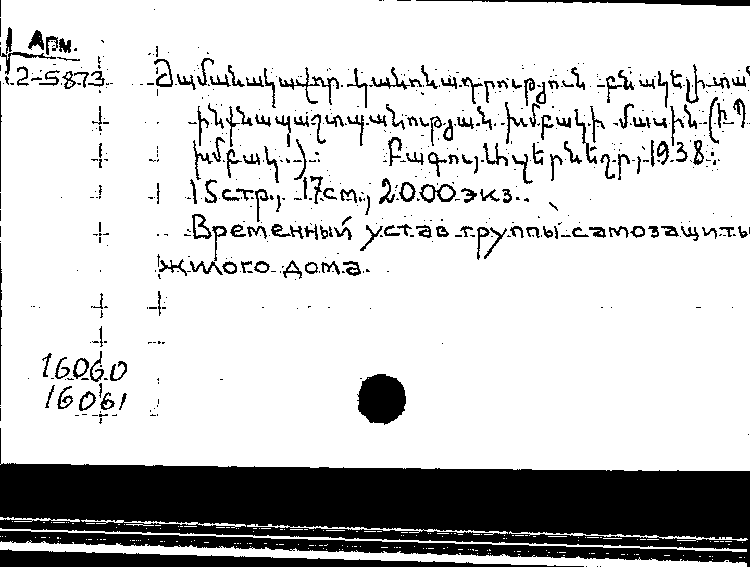 Арм.
2-5873 Ժամանակավոր կանոնադրություն բնակելի տան
ինքնապաշտպանության խմբակի մասին (ԻՊ
խմբակ.): Բաքու, 1938:
15 стр., 17 см., 2000 экз..
Временный устав группы самозащиты
жилого дома.
16060
16061